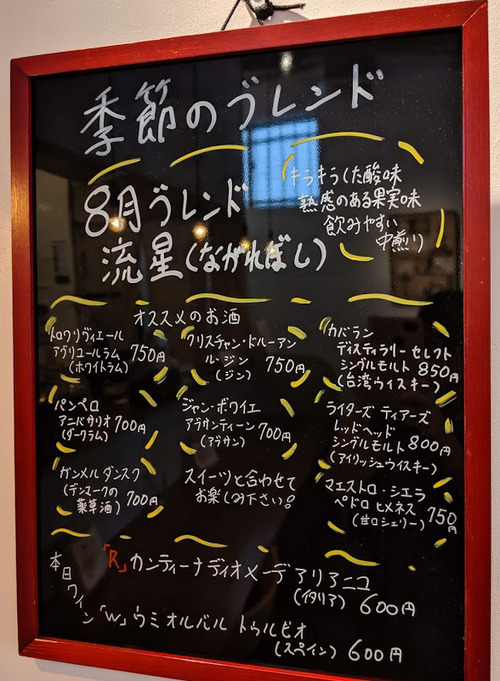 季節のブレンド
8月ブレンド
流星(ながれぼし)
キラキラした酸味
熟感のある果実味
飲みやすい
中煎り
オススメのお酒
トロワリヴィエール
アグリコールラム 750円
(ホワイトラム)
クリスチャン・ドルーアン
ル・ジン 750円
(ジン)
カバラン
ディスティラリー セレクト
シングルモルト 850円
(台湾ウイスキー)
パンペロ
アニバサリオ 700円
(ダークラム)
ジャン・ボワイエ
アブサンティーン 700円
(アブサン)
ライターズ ティアーズ
レッドヘッド
シングルモルト 800円
(アイリッシュウイスキー)
ガンメルダンスク
(デンマークの
薬草酒) 700円
スイーツと合わせて
お楽しみ下さい。
マエストロ・シエラ
ペドロ ヒメネス 750円
(甘口シェリー)
本日ワイン
「R」カンティーナディオメーデ アリアニコ
(イタリア) 600円
「W」ウミ オルバル トゥルビオ
(スペイン) 600円